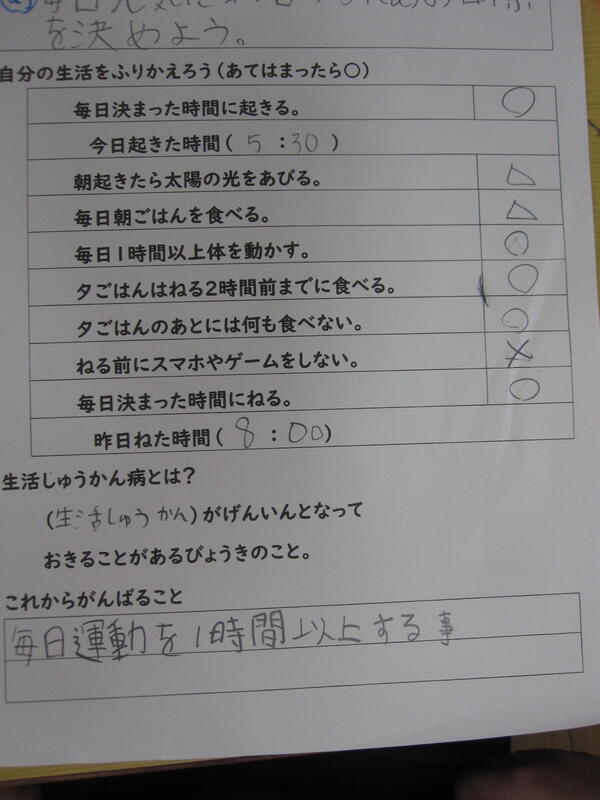 毎日元気に
を決めよう。
自分の生活をふりかえろう(あてはまったら○)
毎日決まった時間に起きる。 ○
今日起きた時間( 5 :30 )
朝起きたら太陽の光をあびる。 △
毎日朝ごはんを食べる。 △
毎日1時間以上体を動かす。 ○
夕ごはんはねる2時間前までに食べる。 ○
夕ごはんのあとには何も食べない。 ○
ねる前にスマホやゲームをしない。 ×
毎日決まった時間にねる。 ○
昨日ねた時間( 8 : 00)
生活しゅうかん病とは?
(生活しゅうかん)がげんいんとなって
おきることがあるびょうきのこと。
これからがんばること
毎日運動を1時間以上する事